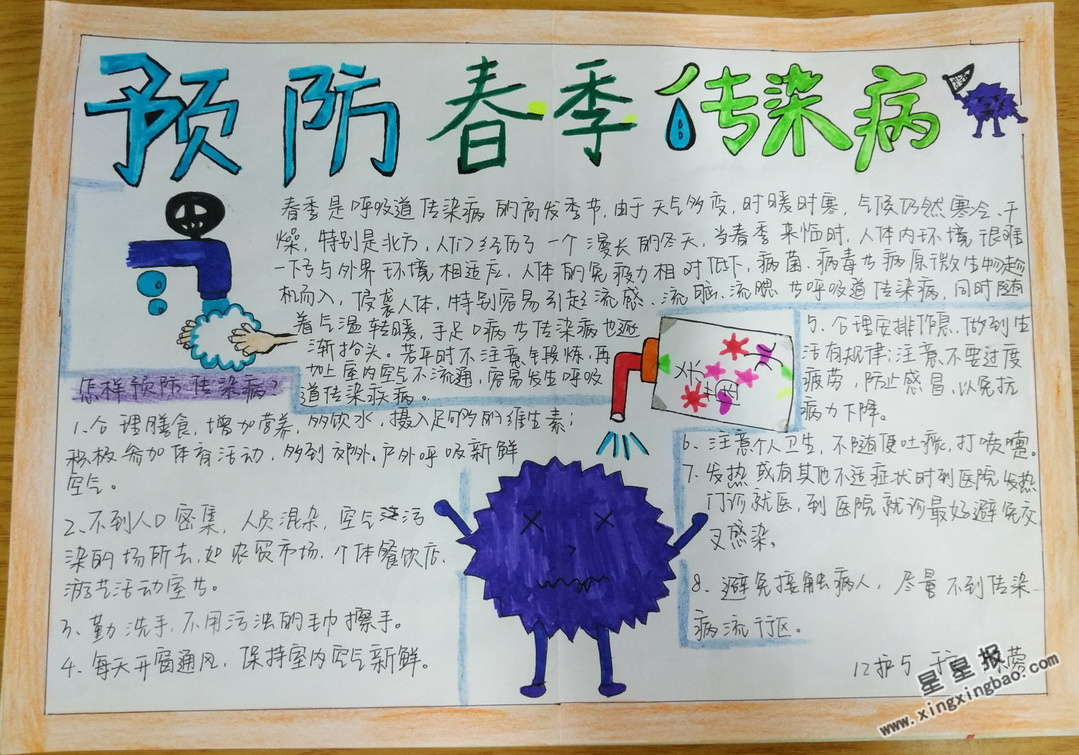 预防春季传染病
春季是呼吸道传染病的高发季节,由于天气多变,时暖时寒,气候仍然寒冷、干
燥,特别是北方,人们经历了一个漫长的冬天,当春季来临时,人体内环境很难
一下与外界环境相适应,人体的免疫力相对低下,病菌、病毒等病原微生物趁
机而入,侵袭人体,特别容易引起流感、流脑、流腮等呼吸道传染病,同时随
着气温转暖,手足口病等传染病也逐
渐抬头。若平时不注意锻炼,再
加上室内空气不流通,容易发生呼吸
道传染疾病。
怎样预防传染病?
1、合理膳食,增加营养,多饮水,摄入足够的维生素;
积极参加体育活动,多到郊外、户外呼吸新鲜
空气。
2、不到人口密集,人员混杂,空气污
染的场所去,如农贸市场、个体餐饮店、
游艺活动室等。
3、勤洗手,不用污浊的毛巾擦手。
4、每天开窗通风,保持室内空气新鲜。
杀菌
5、合理安排作息,做到生
活有规律;注意不要过度
疲劳,防止感冒,以免抗
病力下降。
6、注意个人卫生,不随便吐痰,打喷嚏。
7、发热或有其他不适症状时到医院发热
门诊就医,到医院就诊最好避免交
叉感染。
8、避免接触病人,尽量不到传染
病流行区。
12护5
星星报
www.xingxingbao.com